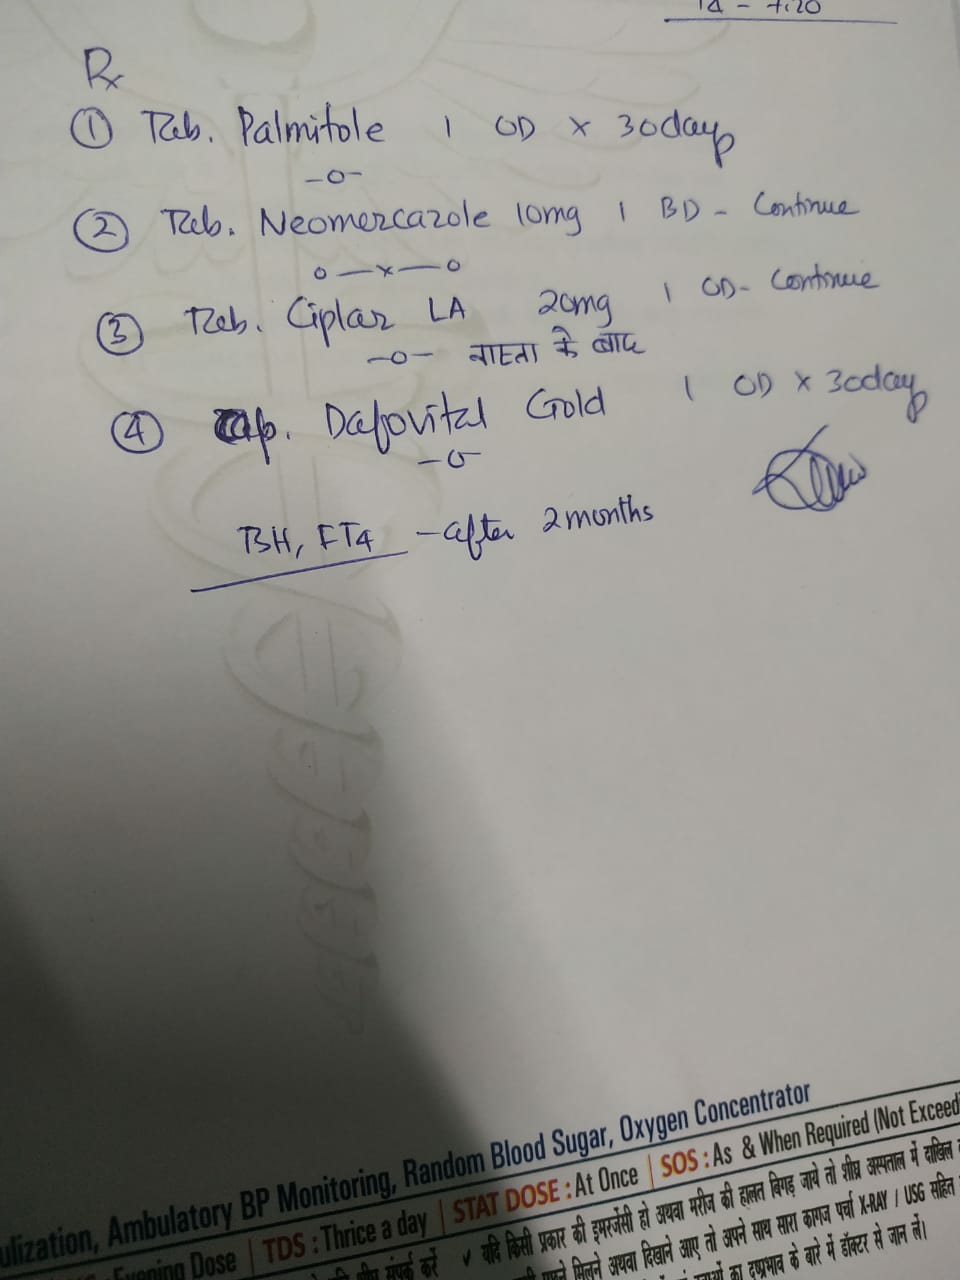 T4 - 7.20
Rx
① Tab. Palmitole 1 OD x 30days
-o-
② Tab. Neomercazole 10mg 1 BD - Continue
o-x-o
③ Tab. Ciplar LA 20mg 1 OD - Continue
-o- नाश्ता के बाद
④ Cap. Dafovital Gold 1 OD x 30days
-o-
TSH, FT4 - after 2 months
ulization, Ambulatory BP Monitoring, Random Blood Sugar, Oxygen Concentrator
Evening Dose | TDS : Thrice a day | STAT DOSE : At Once | SOS : As & When Required (Not Exceed
संपर्क करें ✓ यदि किसी प्रकार की इमरजेंसी हो अथवा मरीज की हालत बिगड़ जाये तो शीघ्र अस्पताल में दाखिल
मिलने अथवा दिखाने आए तो अपने साथ सारा कागज पर्चा X-RAY / USG सहित
का दुष्प्रभाव के बारे में डॉक्टर से जान लें।